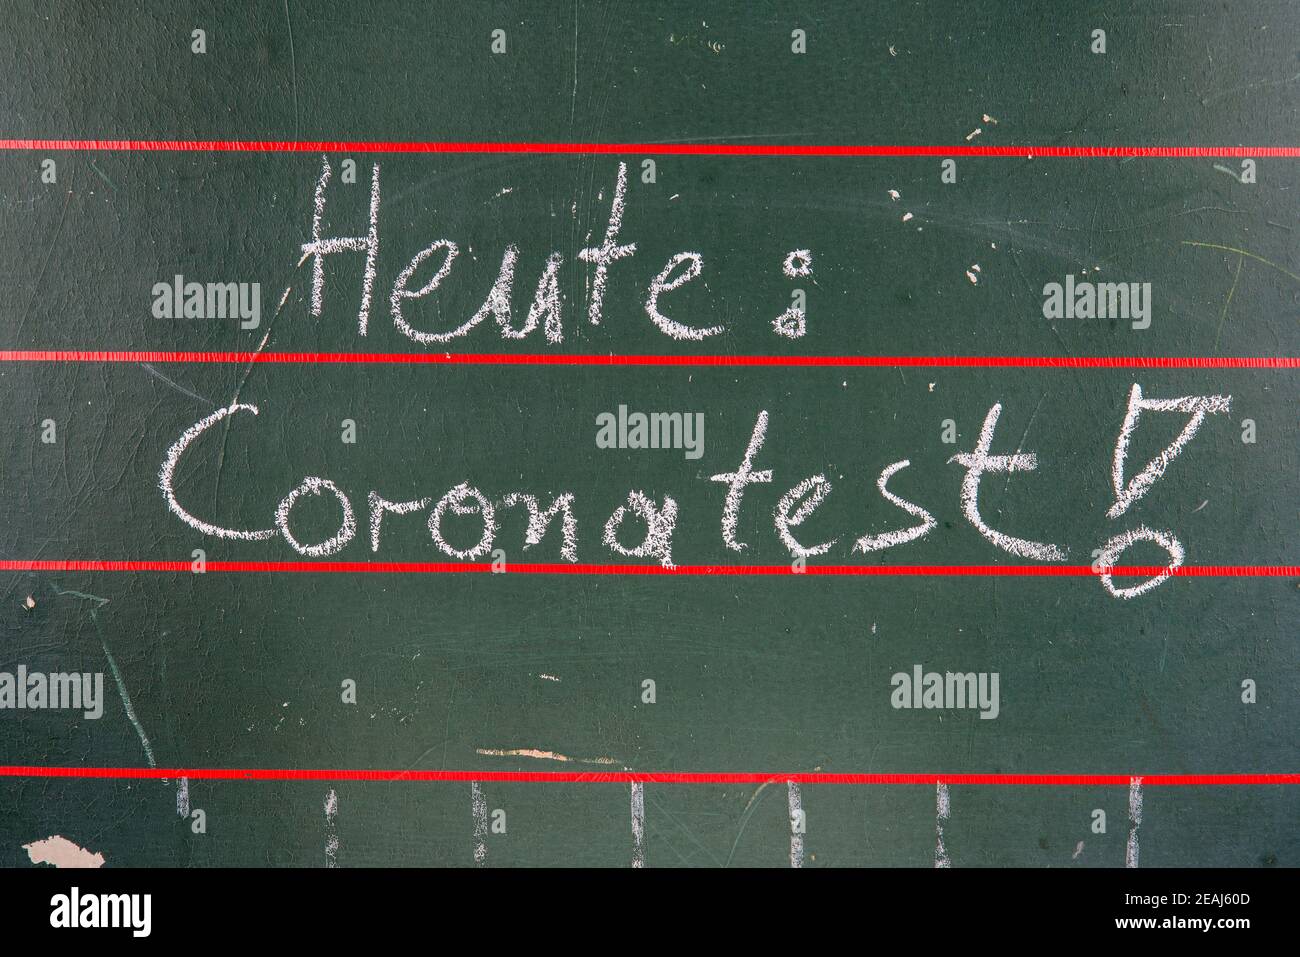 Heute:
Coronatest!
alamy
alamy
alamy
alamy
alamy
alamy
Image ID: 2EAJ60D
www.alamy.com